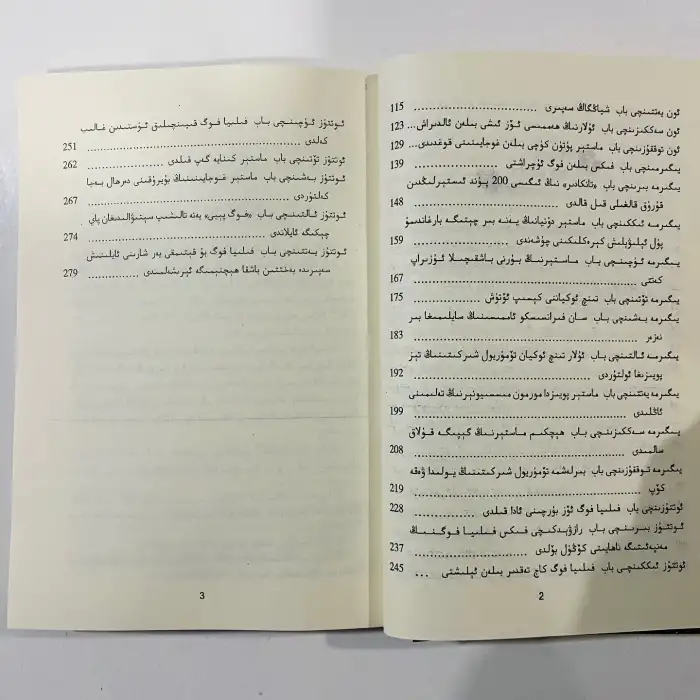 ئون يەتتىنچى باب شياڭگاڭ سەپىرى ........ 115
ئون سەككىزىنچى باب ئۇلارنىڭ ھەممىسى ئۆز ئىشى بىلەن ئالدىراش... 123
ئون توققۇزىنچى باب ماستېر پۈتۈن كۈچى بىلەن غوجايىنىنى قوغدىدى... 129
يىگىرمىنچى باب فىكىس بىلەن فوگ ئۇچراشتى ........ 139
يىگىرمە بىرىنچى باب «تانكادىرە» نىڭ ئىگىسى 200 پوند ئىستېرلىڭدىن
قۇرۇق قالغىلى قىل قالدى ........ 148
يىگىرمە ئىككىنچى باب ماستېر دۇنيانىڭ يەنە بىر چېتىگە بارغاندىمۇ
پۇل ئېلىۋېلىش كېرەكلىكىنى چۈشەندى ........ 159
يىگىرمە ئۈچىنچى باب ماستېرنىڭ بۇرنى باشقىچىلا ئۇزىراپ
كەتتى ........ 167
يىگىرمە تۆتىنچى باب تىنچ ئوكياننى كېسىپ ئۆتۈش ........ 175
يىگىرمە بەشىنچى باب سان فرانسىسكو ئاممىسىنىڭ سايلىمىغا بىر
نەزەر ........ 183
يىگىرمە ئالتىنچى باب ئۇلار تىنچ ئوكيان تۆمۈريول شىركىتىنىڭ تېز
پويىزىغا ئولتۇردى ........ 192
يىگىرمە يەتتىنچى باب ماستېر پويىزدا مورمون مىسسىيونېرنىڭ تەلىمىنى
ئاڭلىدى ........ 199
يىگىرمە سەككىزىنچى باب ھېچكىم ماستېرنىڭ گېپىگە قۇلاق
سالمىدى ........ 208
يىگىرمە توققۇزىنچى باب بىرلەشمە تۆمۈريول شىركىتىنىڭ يولىدا ۋەقە
كۆپ ........ 219
ئوتتۇزىنچى باب فىلىيا فوگ ئۆز بۇرچىنى ئادا قىلدى ........ 228
ئوتتۇز بىرىنچى باب رازۋېدكىچى فىكىس فىلىيا فوگنىڭ
مەنپەئىتىگە ناھايىتى كۆڭۈل بۆلدى ........ 237
ئوتتۇز ئىككىنچى باب فىلىيا فوگ كاج تەقدىر بىلەن ئېلىشتى ... 245
2
ئوتتۇز ئۈچىنچى باب فىلىيا فوگ قىيىنچىلىق ئۈستىدىن غالىب
كەلدى ........ 251
ئوتتۇز تۆتىنچى باب ماستېر كىنايە گەپ قىلدى ........ 262
ئوتتۇز بەشىنچى باب ماستېر غوجايىنىنىڭ بۇيرۇقىنى دەرھال بەجا
كەلتۈردى ........ 267
ئوتتۇز ئالتىنچى باب «فوگ پېيى» يەنە تالىشىپ سېتىۋالىدىغان پاي
چېكىگە ئايلاندى ........ 274
ئوتتۇز يەتتىنچى باب فىلىيا فوگ بۇ قېتىمقى يەر شارىنى ئايلىنىش
سەپىرىدە بەختتىن باشقا ھېچنېمىگە ئېرىشەلمىدى ........ 279
3